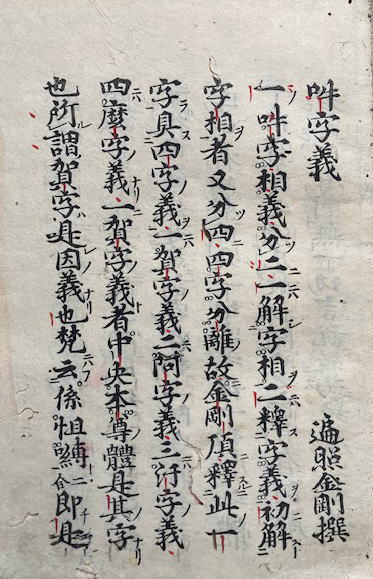 吽字義　遍照金剛撰
一吽字相義分二一解字相二釋字義初解
字相者又分四四字分離故金剛頂釋此一
字具四字義一賀字義二阿字義三汙字義
四麼字義一賀字義者中央本尊體是其字
也所謂賀字是因義也梵云係怛嚩二合即是